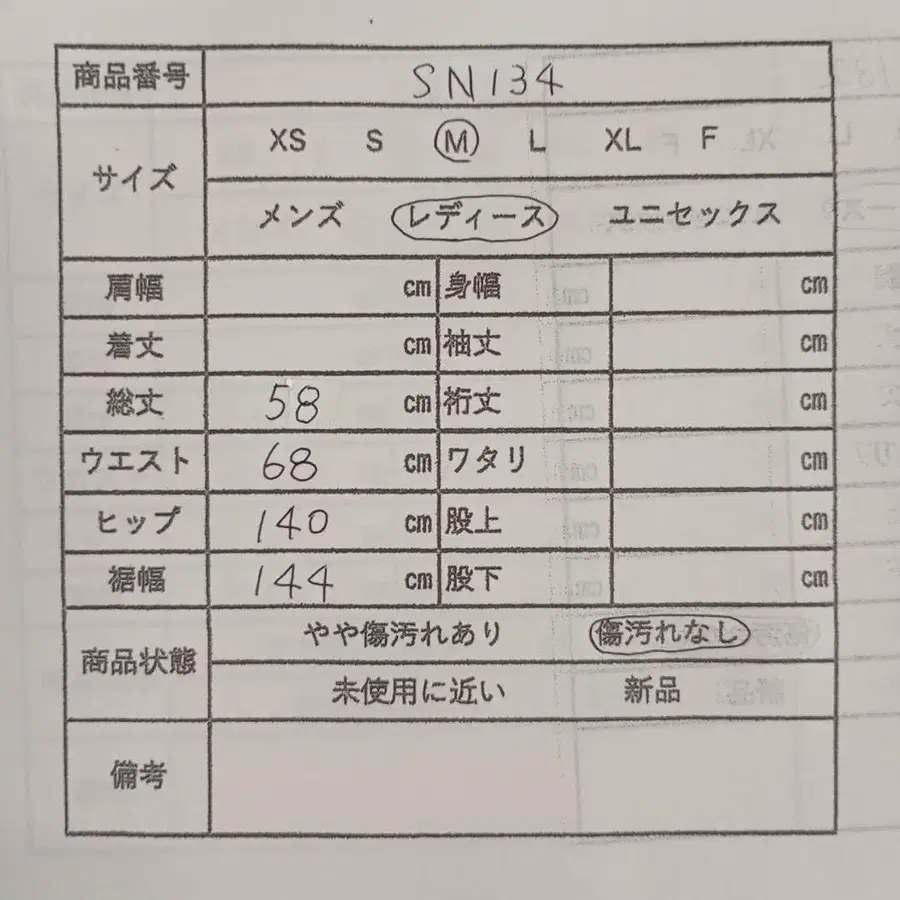 商品番号 SN134
サイズ XS S M L XL F
メンズ レディース ユニセックス
肩幅 cm 身幅 cm
着丈 cm 袖丈 cm
総丈 58 cm 裄丈 cm
ウエスト 68 cm ワタリ cm
ヒップ 140 cm 股上 cm
裾幅 144 cm 股下 cm
商品状態 やや傷汚れあり 傷汚れなし
未使用に近い 新品
備考